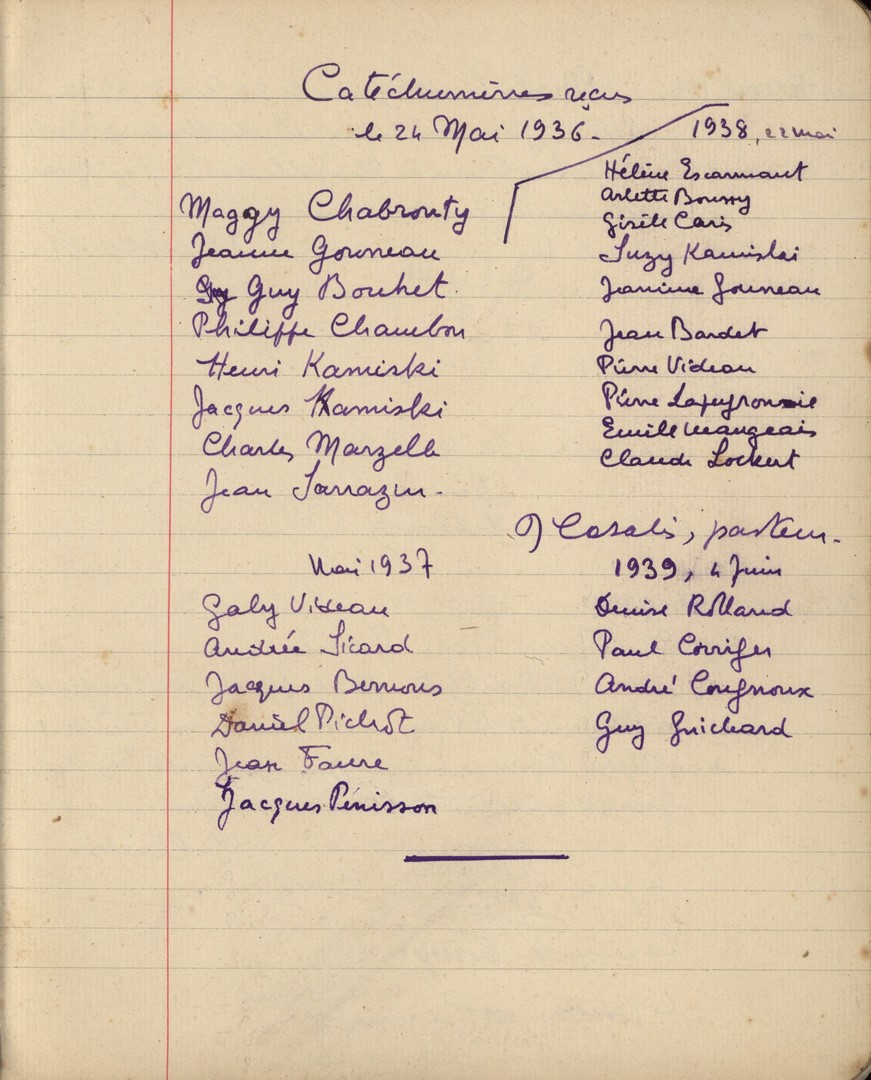 Catéchumènes reçus
le 24 Mai 1936.
Maggy Chabrouty
Jeanne Gouneau
Guy Bouhet
Philippe Chambon
Henri Kamiski
Jacques Kamiski
Charles Marzelle
Jean Sarrazin.
Mai 1937
Gaby Videau
Andrée Sicard
Jacques Bernous
Daniel Pichot
Jean Faure
Jacques Pénisson
1938, 22 mai
Hélène Escarmant
Arlette Boussy
Gisèle Caris
Suzy Kamiski
Jeanine Gouneau
Jean Bardet
Pierre Videau
Pierre Lapeyronnie
Emile Maugeais
Claude Lockert
Casalis, pasteur.
1939, 4 Juin
Denise Rolland
Paul Corriger
André Cougnoux
Guy Guichard